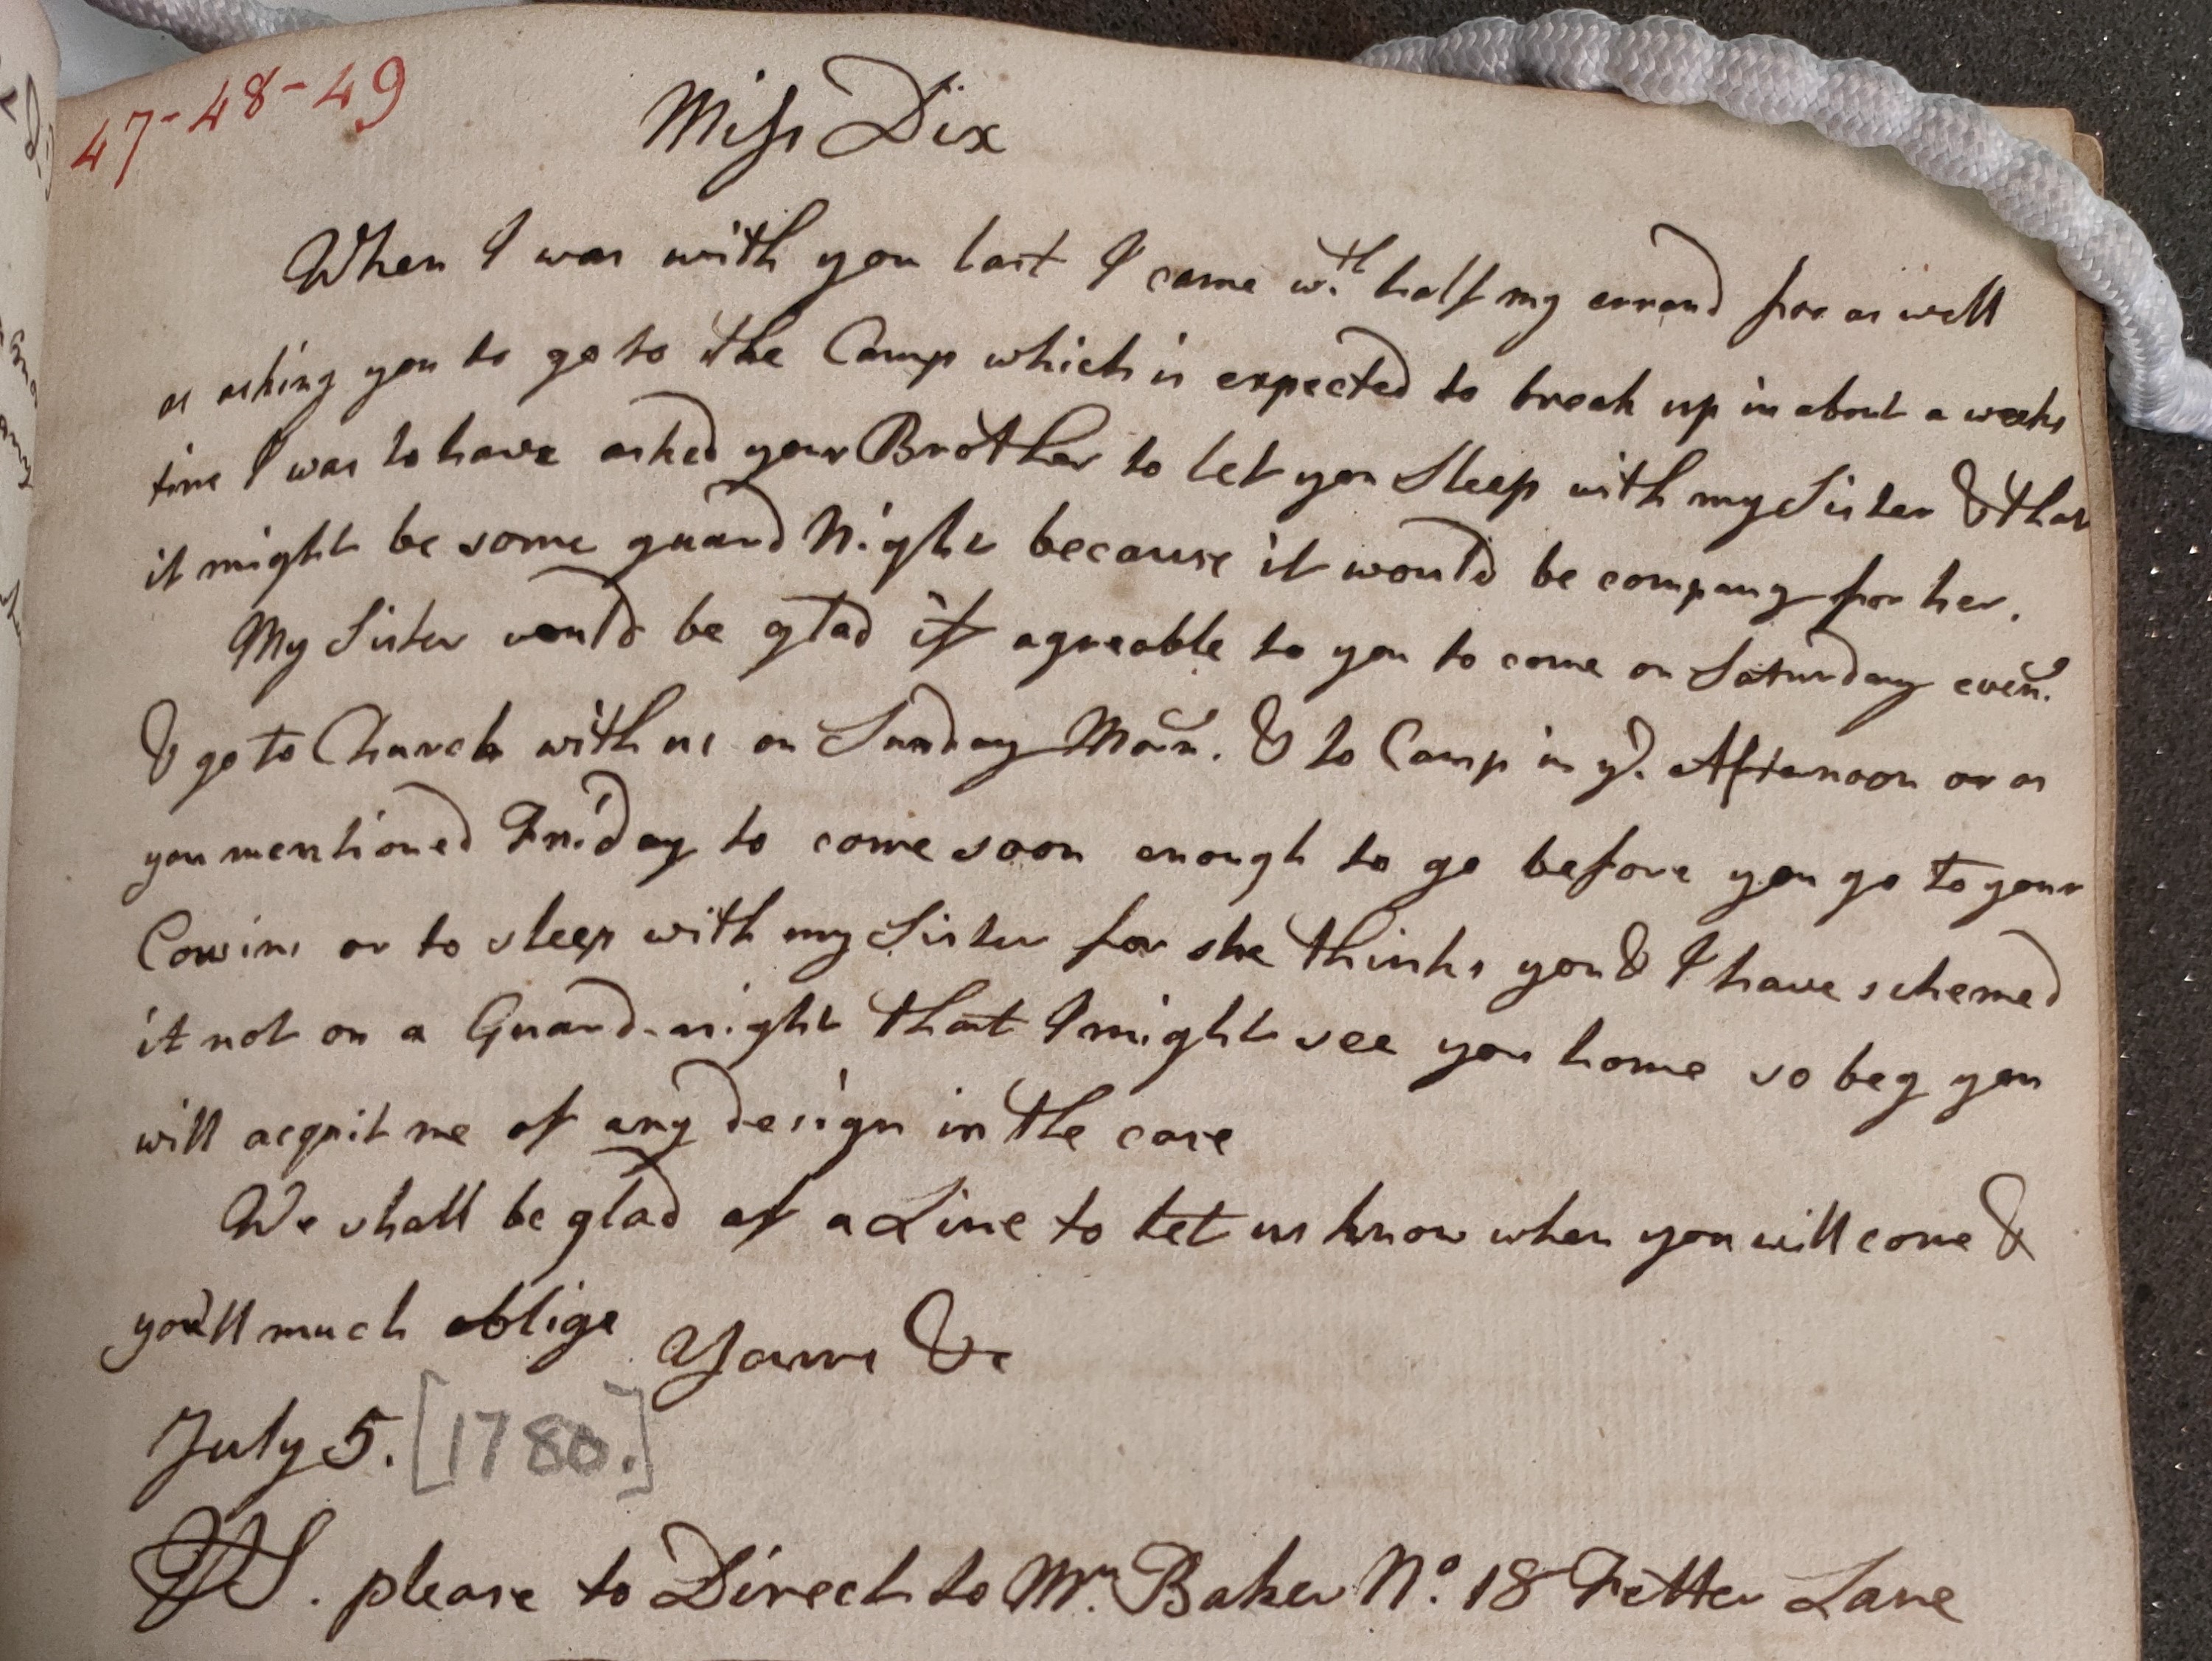 47-48-49
Miss Dix
When I was with you last I came wth. half my errand for as well
as asking you to go to the Camp which is expected to break up in about a weeks
time I was to have asked your Brother to let you Sleep with my Sister & that
it might be some guard Night because it would be company for her.
My Sister would be glad if agreable to you to come on Saturday even.
& go to Church with us on Sunday Morn. & to Camp in ye. Afternoon or as
you mentioned Friday to come soon enough to go before you go to your
Cousins or to sleep with my Sister for she thinks you & I have schemed
it not on a Guard-night that I might see you home so beg you
will acquit me of any design in the case
We shall be glad of a Line to let us know when you will come &
you'll much oblige Yours &c
July 5. [1780.]
PS. please to Direct to Mrs. Baker No. 18 Fetter Lane